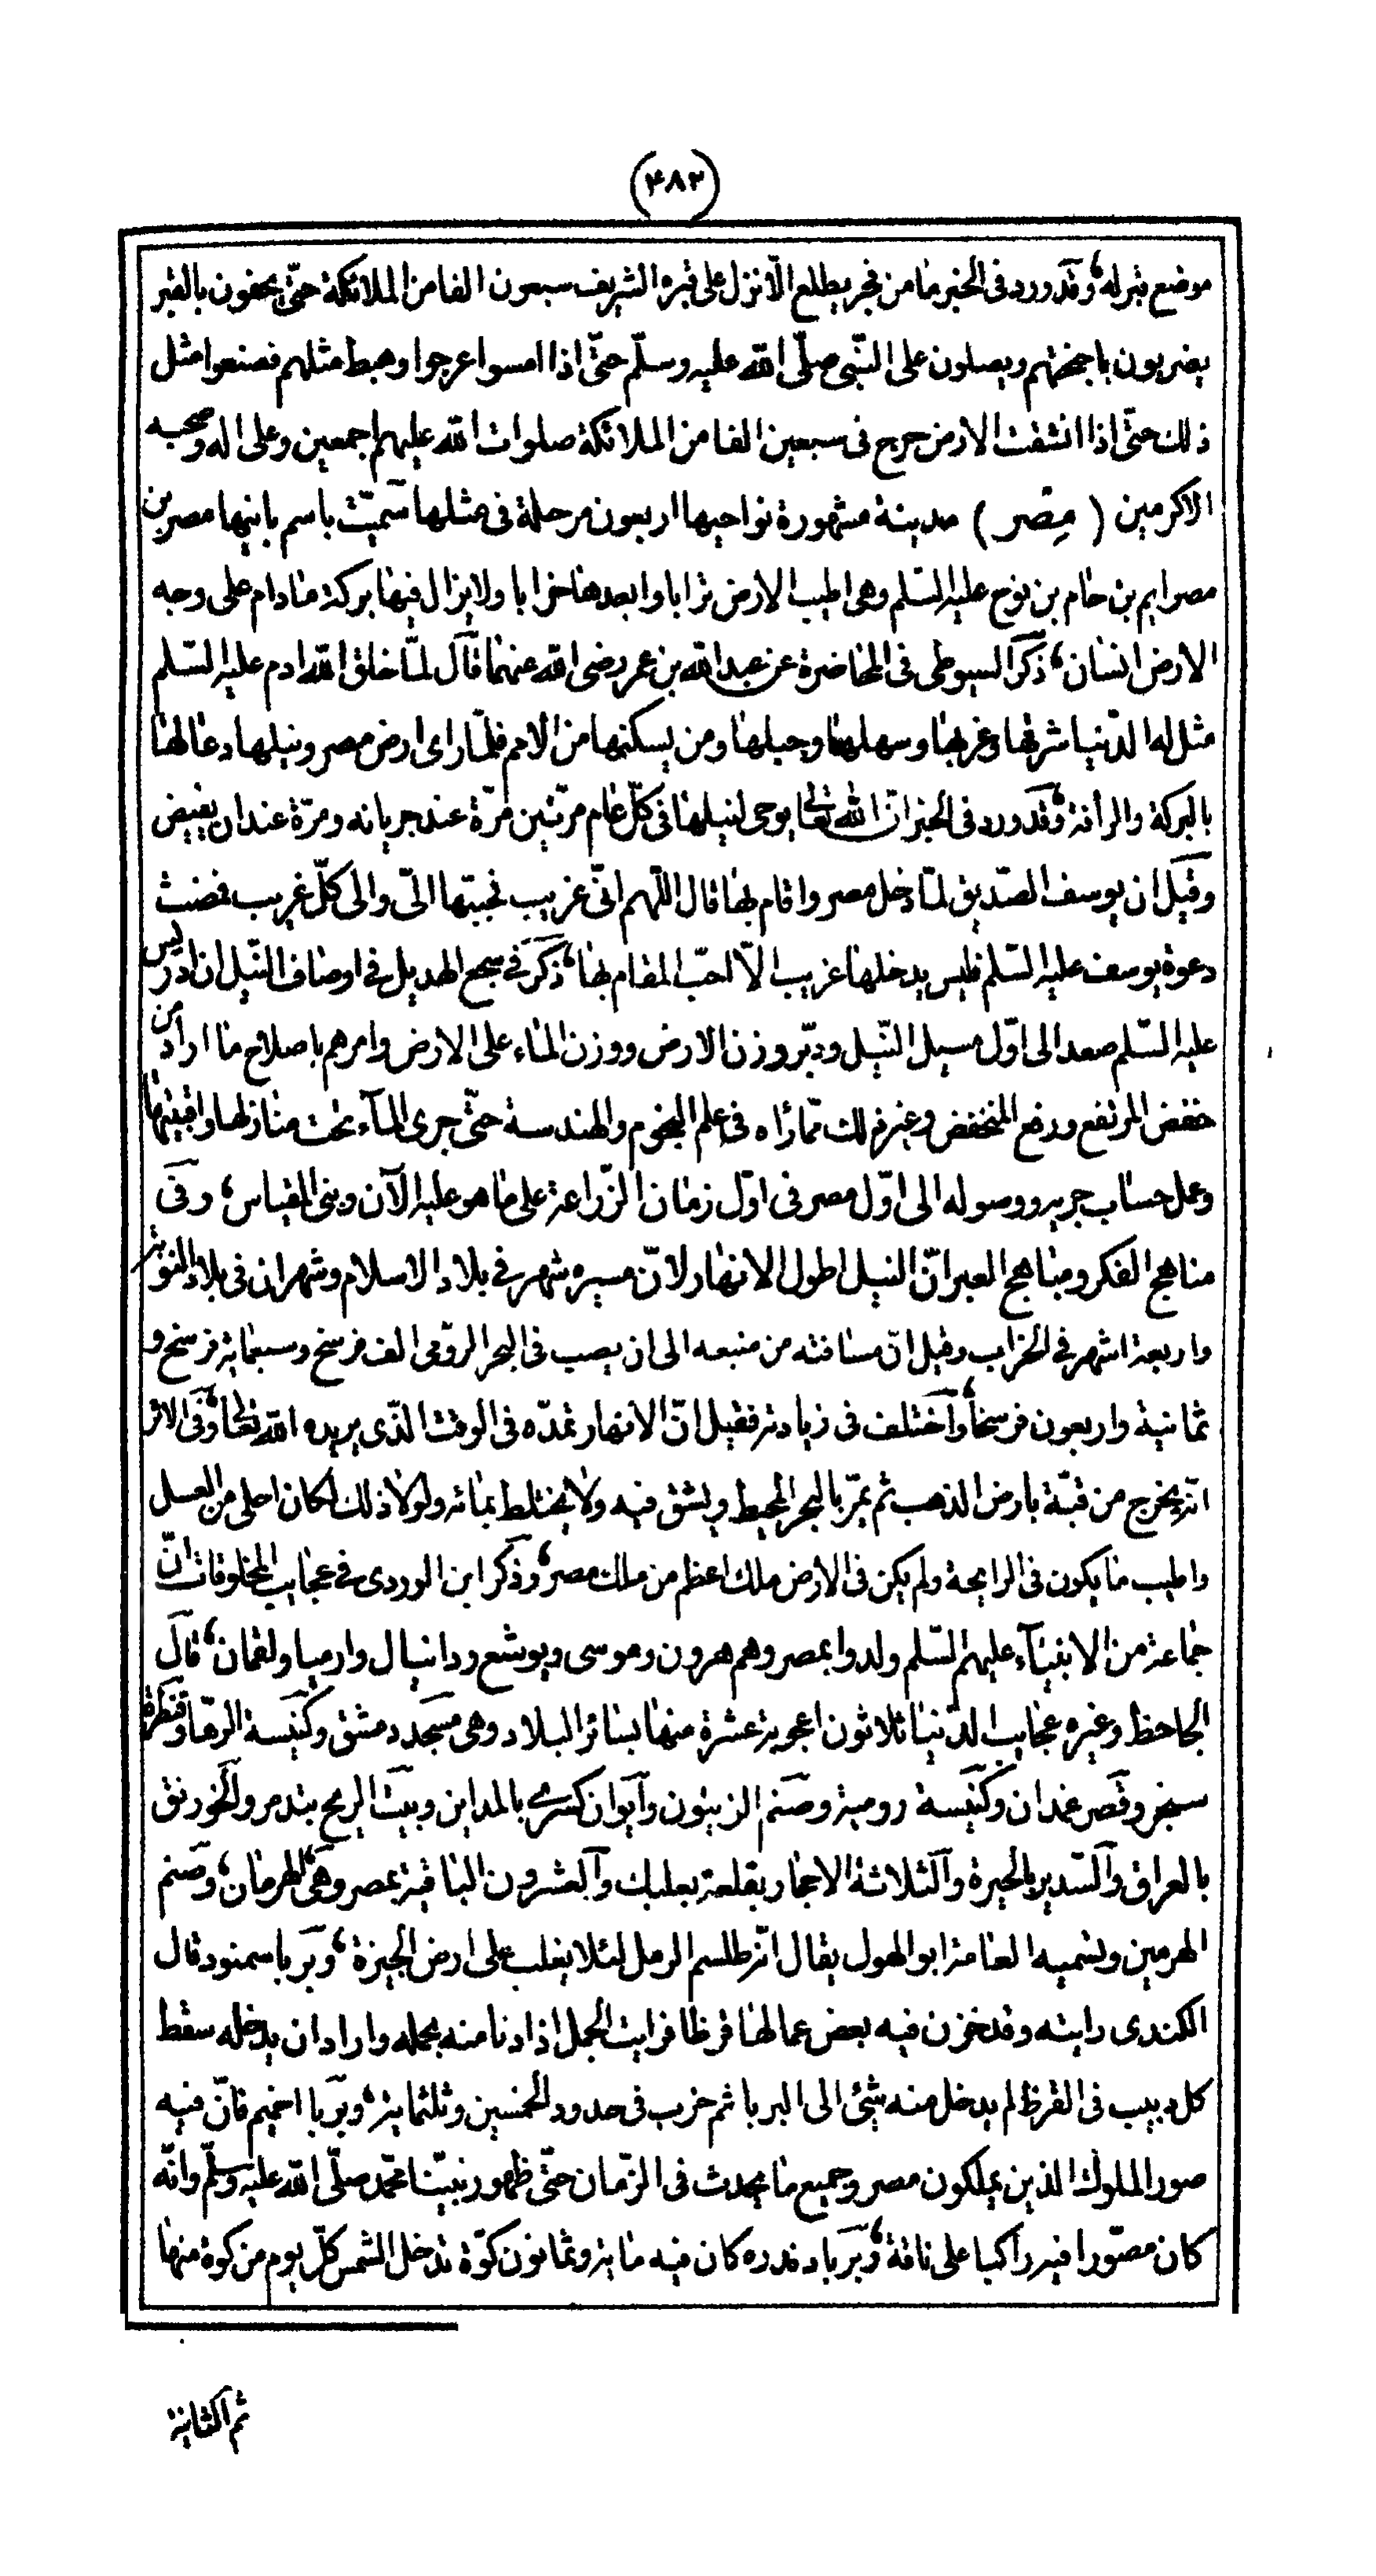 (۴۸۳)
موضع قبر له، وقد ورد فى الخبر ما من فجر يطلع الّا نزل على قبره الشريف سبعون الفا من الملائكة حتّى يحفون بالقبر
يضربون باجنحتهم ويصلون على النّبى صلّى اللّه عليه وسلّم حتّى اذا امسوا عرجوا وهبط مثلهم فصنعوا مثل
ذلك حتّى اذا انشقت الارض خرج فى سبعين الفا من الملائكة صلوات اللّه عليهم اجمعين وعلى اله وصحبه
الاكرمين ( مصر ) مدينة مشهورة نواحيها اربعون مرحلة فى مثلها سمّيت باسم بانيها مصر بن
مصرايم بن حام بن نوح عليه السّلم وهى اطيب الارض ترابا وابعدها خرابا ولا يزال فيها بركة مادام على وجه
الارض انسان، ذكر السيوطى فى المحاضرة عن عبد اللّه بن عمر رضى اللّه عنهما قال لمّا خلق اللّه ادم عليه السّلم
مثل له الدّنيا شرقها وغربها وسهلها وجبلها ومن يسكنها من الامم فلمّا راى ارض مصر ونيلها دعا لها
بالبركة والرأفة، وقد ورد فى الخبر انّ اللّه تعالى يوحى لنيلها فى كلّ عام مرّتين مرّة عند جريانه ومرّة عند ان يغيض
وقيل ان يوسف الصّديق لمّا دخل مصر واقام بها قال اللّهم انّى غريب فحببها الىّ والى كلّ غريب فمضت
دعوة يوسف عليه السّلم فليس يدخلها غريب الّا احبّ المقام بها، ذكر فى سجع الهديل فى اوصاف النّيل ان ادريس
عليه السّلم صعد الى اوّل مسيل النّيل ودبّر وزن الارض ووزن الماء على الارض وامرهم باصلاح ما اراد من
خفض المرتفع ورفع المنخفض وغير ذلك ممّا رٰاه فى علم النجوم والهندسة حتّى جرى المآء تحت منازلها وافنيتها
وعمل حساب جريه ووصوله الى اوّل مصر فى اوّل زمان الزّراعة على ما هو عليه الآن وبنى المقياس، وفى
مناهج الفكر ومباهج العبر انّ النيل اطول الانهار لانّ مسيره شهر فى بلاد الاسلام وشهران فى بلاد النوبة
واربعة اشهر فى الخراب وقيل انّ مسافته من منبعه الى ان يصب فى البحر الرّومى الف فرسخ وسبعماية فرسخ و
ثمانية واربعون فرسخا، واختلف فى زيادته فقيل انّ الانهار تمدّه فى الوقت الّذى يريده اللّه تعالى، وفى الاثر
انّه يخرج من قبّة بارض الذهب ثم يمرّ بالبحر المحيط ويشق فيه ولا يختلط بمائه ولولا ذلك لكان احلى من العسل
واطيب ما يكون فى الرايحة ولم يكن فى الارض ملك اعظم من ملك مصر، وذكر ابن الوردى فى عجايب المخلوقات انّ
جماعة من الانبيآء عليهم السّلم ولدوا بمصر وهم هرون وموسى ويوشع ودانيال وارميا ولقمان، قال
الجاحظ وغيره عجايب الدّنيا ثلاثون اعجوبة عشرة منها بسائر البلاد وهى مسجد دمشق وكنيسة الرّها وقنطرة
سنجر وقصر غمدان وكنيسة رومية وصنم الزيتون وايوان كسرى بالمداين وبيت الريح بتدمر والخورنق
بالعراق والسّدير بالحيرة والثلاثة الاحجار بقلعة بعلبك والعشرون الباقية بمصر وهى الهرمان، وصنم
الهرمين وتسميه العامة ابو الهول يقال انّه طلسم الرمل لئلا يغلب على ارض الجيزة، وبربا سمنود قال
الكندى رايته وقد خزن فيه بعض عمالها قرظا فرايت الجمل اذا دنا منه بحمله واراد ان يدخله سقط
كل دبيب فى القرظ لم يدخل منه شيئ الى البربا ثم خرب فى حدود الخمسين وثلثماية، وبربا اخميم فانّ فيه
صور الملوك الذين يملكون مصر وجميع ما يحدث فى الزّمان حتّى ظهور نبيّنا محمّد صلّى اللّه عليه وسلّم وانّه
كان مصوّرا فيه راكبا على ناقة، وبربا دندره كان فيه ماية وثمانون كوّة تدخل الشمس كلّ يوم من كوة منها
ثم الثانية